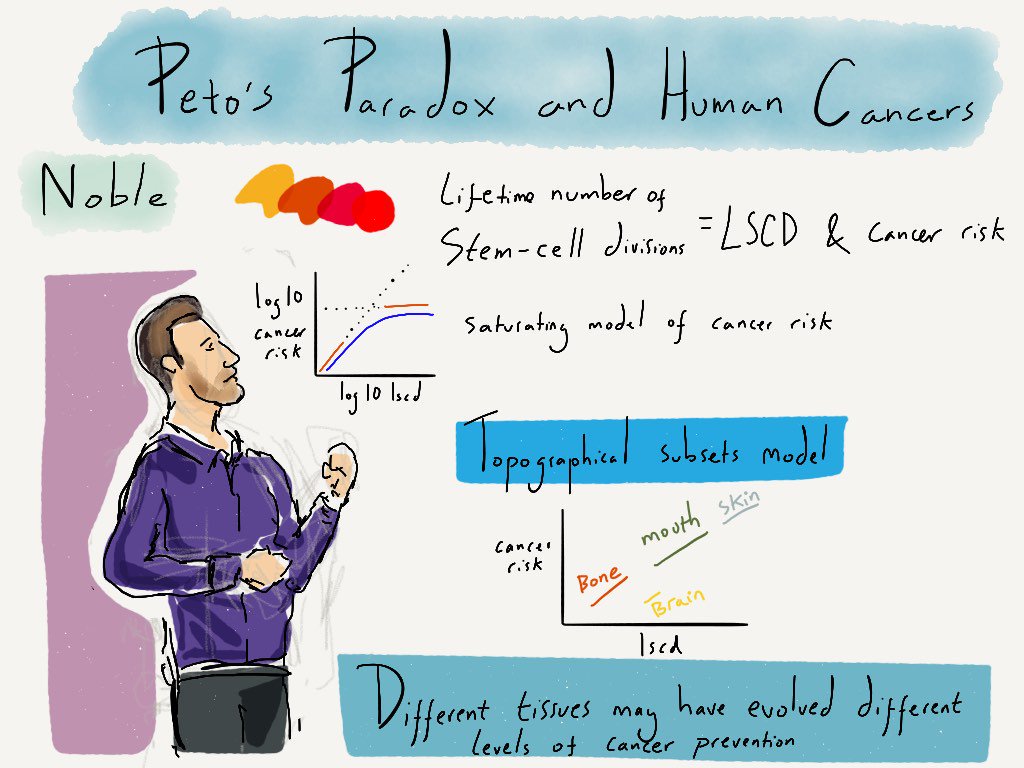 Peto's Paradox and Human Cancers
Noble
Lifetime number of
Stem-cell divisions = LSCD & cancer risk
log10
cancer
risk
log10 lscd
saturating model of cancer risk
Topographical subsets model
cancer
risk
Bone
mouth
skin
Brain
lscd
Different tissues may have evolved different
levels of cancer prevention